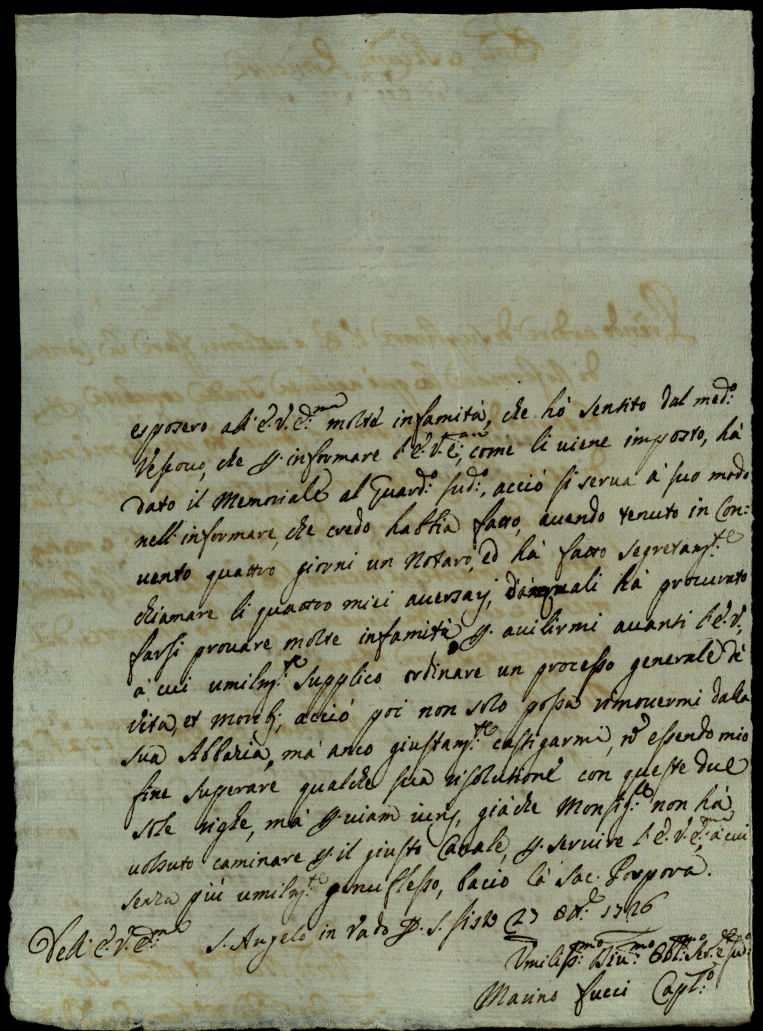 esposero all'E.V. Em.ma molte infamità, che hò sentito dal med.o
Vescovo, che p. informare l'E.V. Em.ma, come li viene imposto, hà
dato il Memoriale al Guard.o sud.o, acciò si serva à suo modo
nell'informare, che credo habbia fatto, avendo tenuto in Con=
vento quattro giorni un Notaro, ed hà fatto segretam.te
chiamare li quattro miei aversarj, quali hà procurato
farsi provare molte infamità p. avilirmi avanti l'E.V.,
à cui umilm.te supplico ordinare un processo generale dè
vita, et morib., acciò poi non solo possa rimovermi dalla
sua Abbazia, mà anco giustam.te castigarmi, nõ essendo mio
fine superare qualche sua risolutione con queste due
sole righe, mà p. viam juris, giàche Monsig.re non hà
voluto caminare p. il giusto Canale, p. servire l'E.V. Em.ma à cui
senza più umilm.te genuflesso, bacio la Sac. Porpora.
Dell'E.V. Em.ma
S. Angelo in Vado 23 Ott.e 1726
Umiliss.mo Div.mo Obl.mo Ser.e
Marino Fucci Capl.o